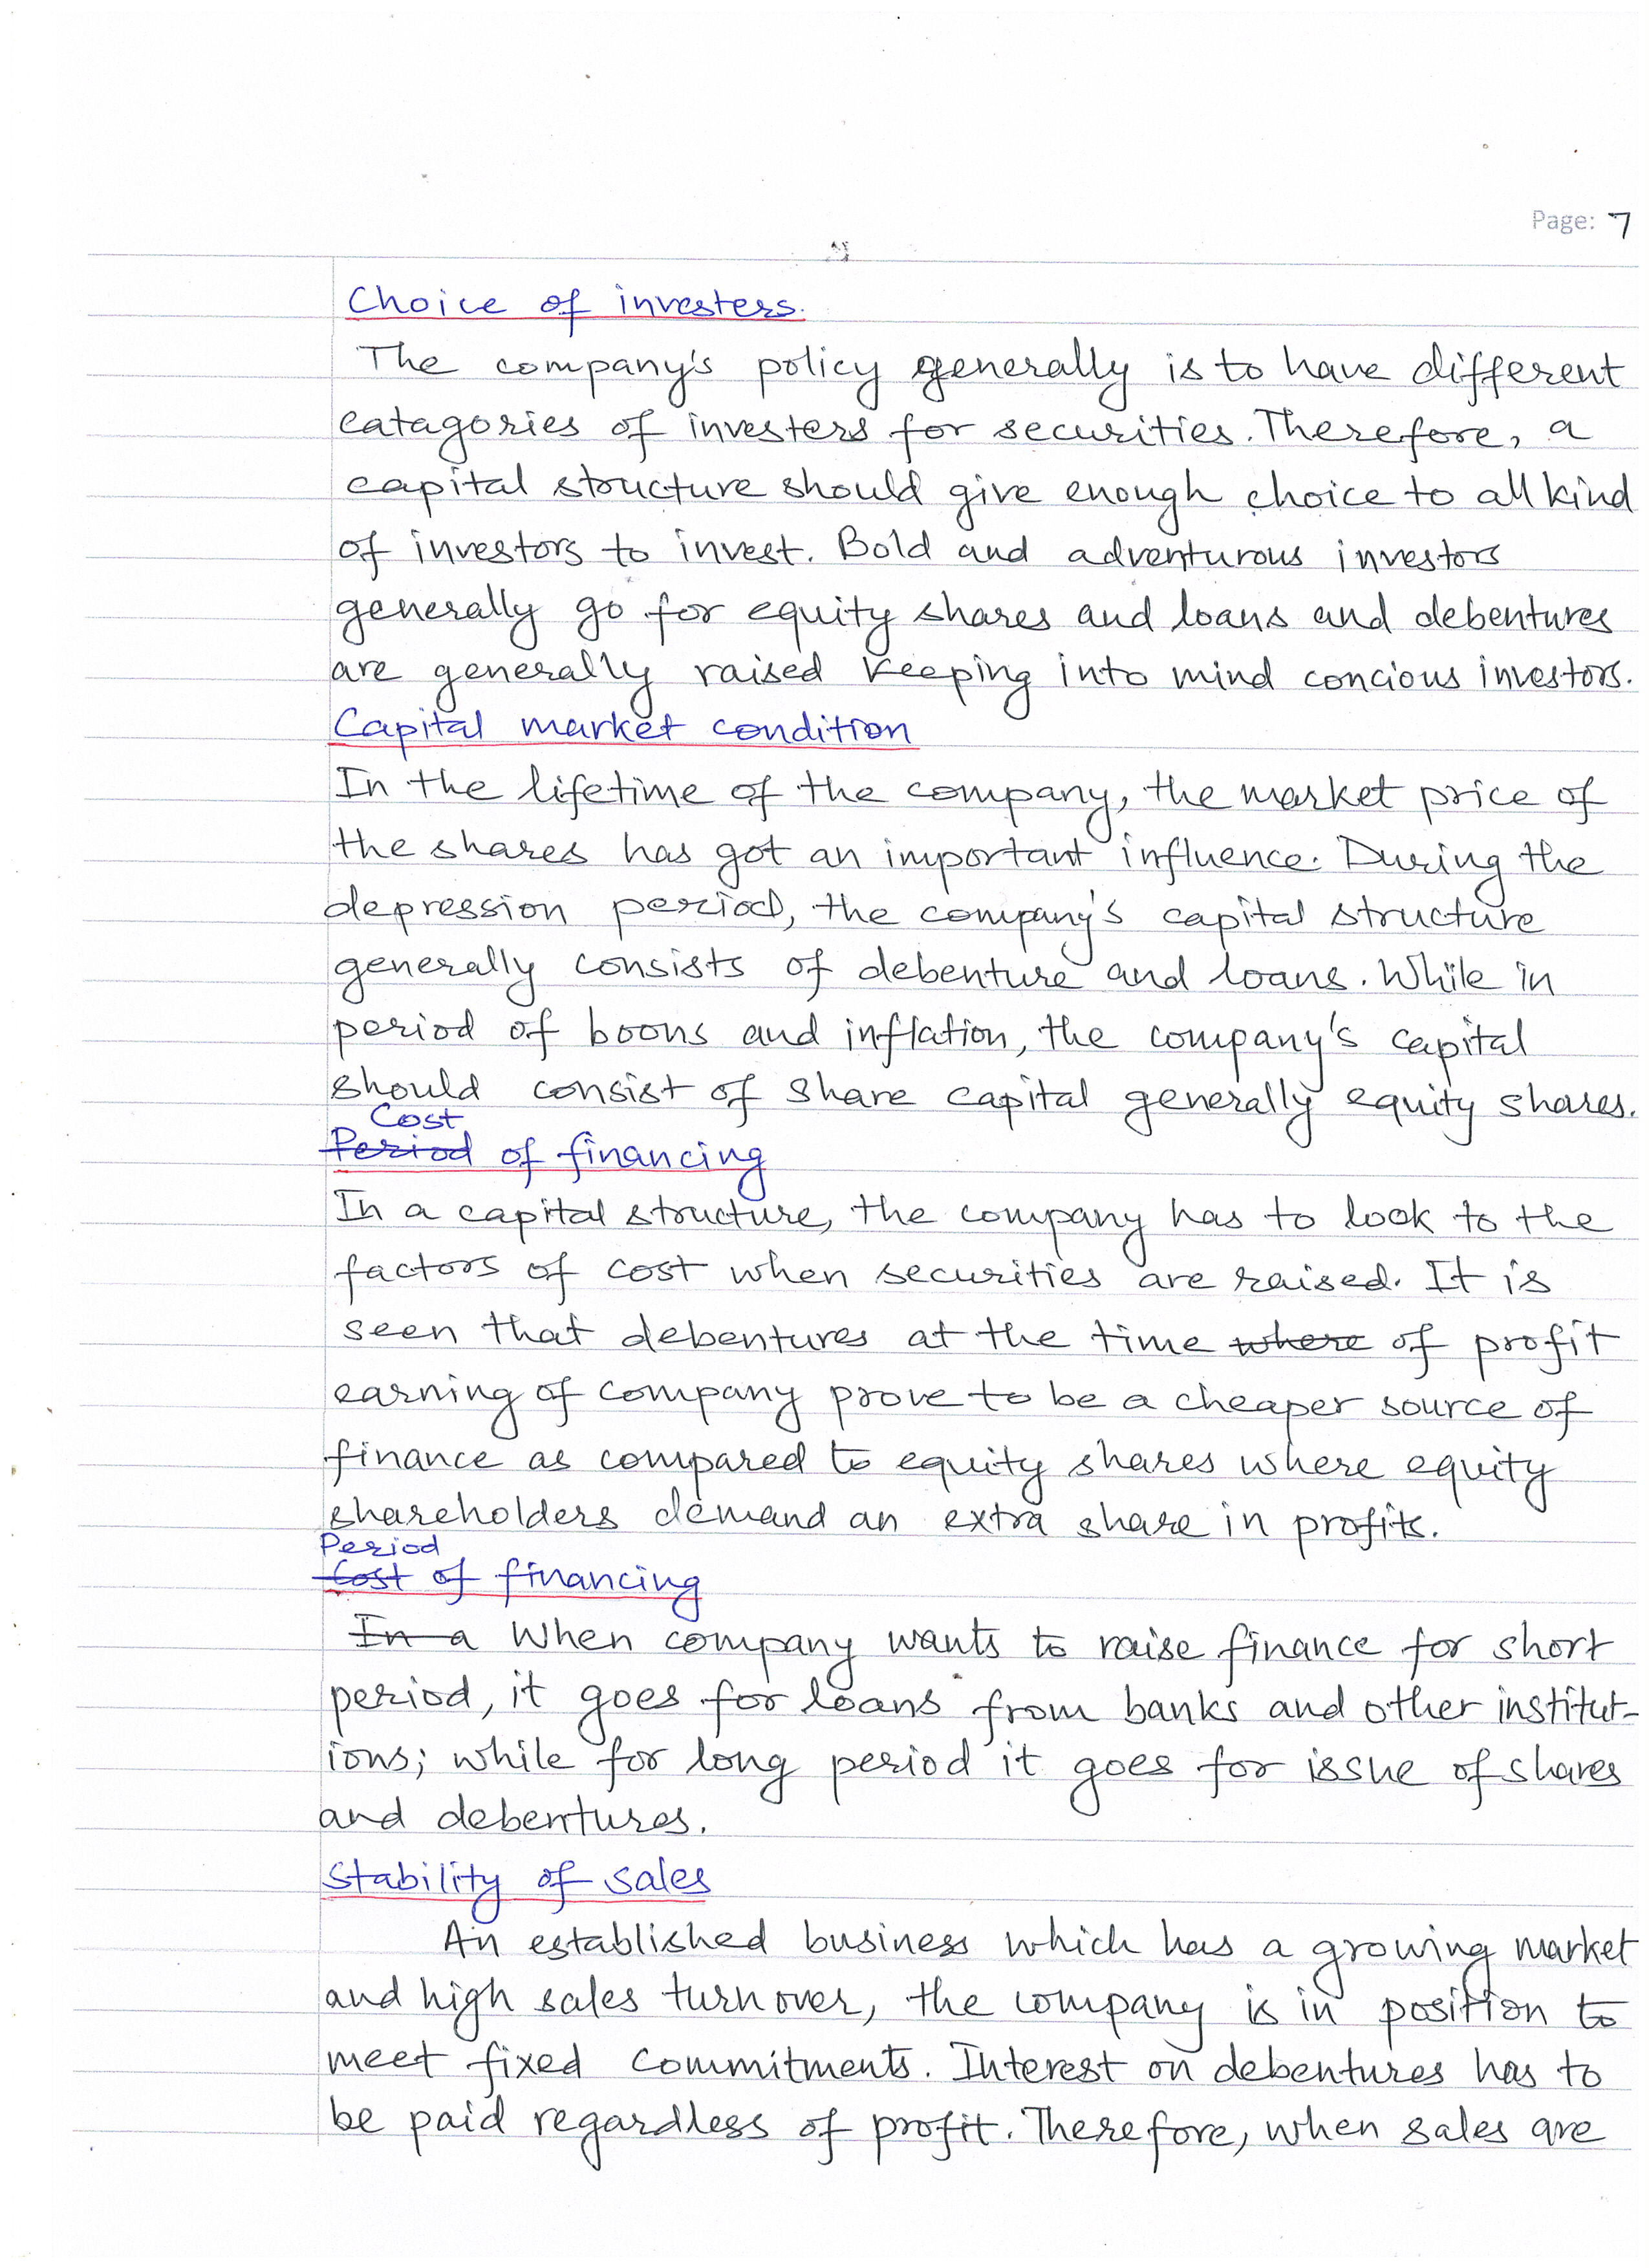 Page: 7
Choice of investers.
The company's policy generally is to have different
catagories of investers for securities. Therefore, a
capital structure should give enough choice to all kind
of investors to invest. Bold and adventurous investors
generally go for equity shares and loans and debentures
are generally raised keeping into mind concious investors.
Capital market condition
In the lifetime of the company, the market price of
the shares has got an important influence. During the
depression period, the company's capital structure
generally consists of debenture and loans. While in
period of boons and inflation, the company's capital
should consist of share capital generally equity shares.
Cost
Period of financing
In a capital structure, the company has to look to the
factors of cost when securities are raised. It is
seen that debentures at the time where of profit
earning of company prove to be a cheaper source of
finance as compared to equity shares where equity
shareholders demand an extra share in profits.
Period
Cost of financing
In a When company wants to raise finance for short
period, it goes for loans from banks and other institut-
ions; while for long period it goes for issue of shares
and debentures.
Stability of sales
An established business which has a growing market
and high sales turnover, the company is in position to
meet fixed commitments. Interest on debentures has to
be paid regardless of profit. Therefore, when sales are